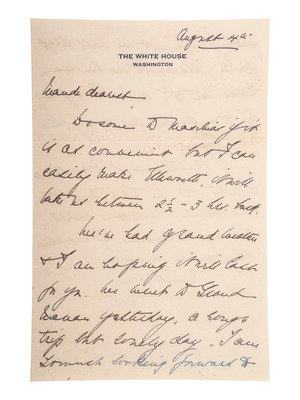 August 4th
THE WHITE HOUSE
WASHINGTON
Maude dearest,
Do come to if it
is as convenient but I can
easily make Ellsworth, it will
take us between 2 ½ - 3 hrs.
We've had grand weather
& I am hoping it will last
for you. We went to Grand
Manan yesterday, a rough
trip but lovely day. I am
so much looking forward to